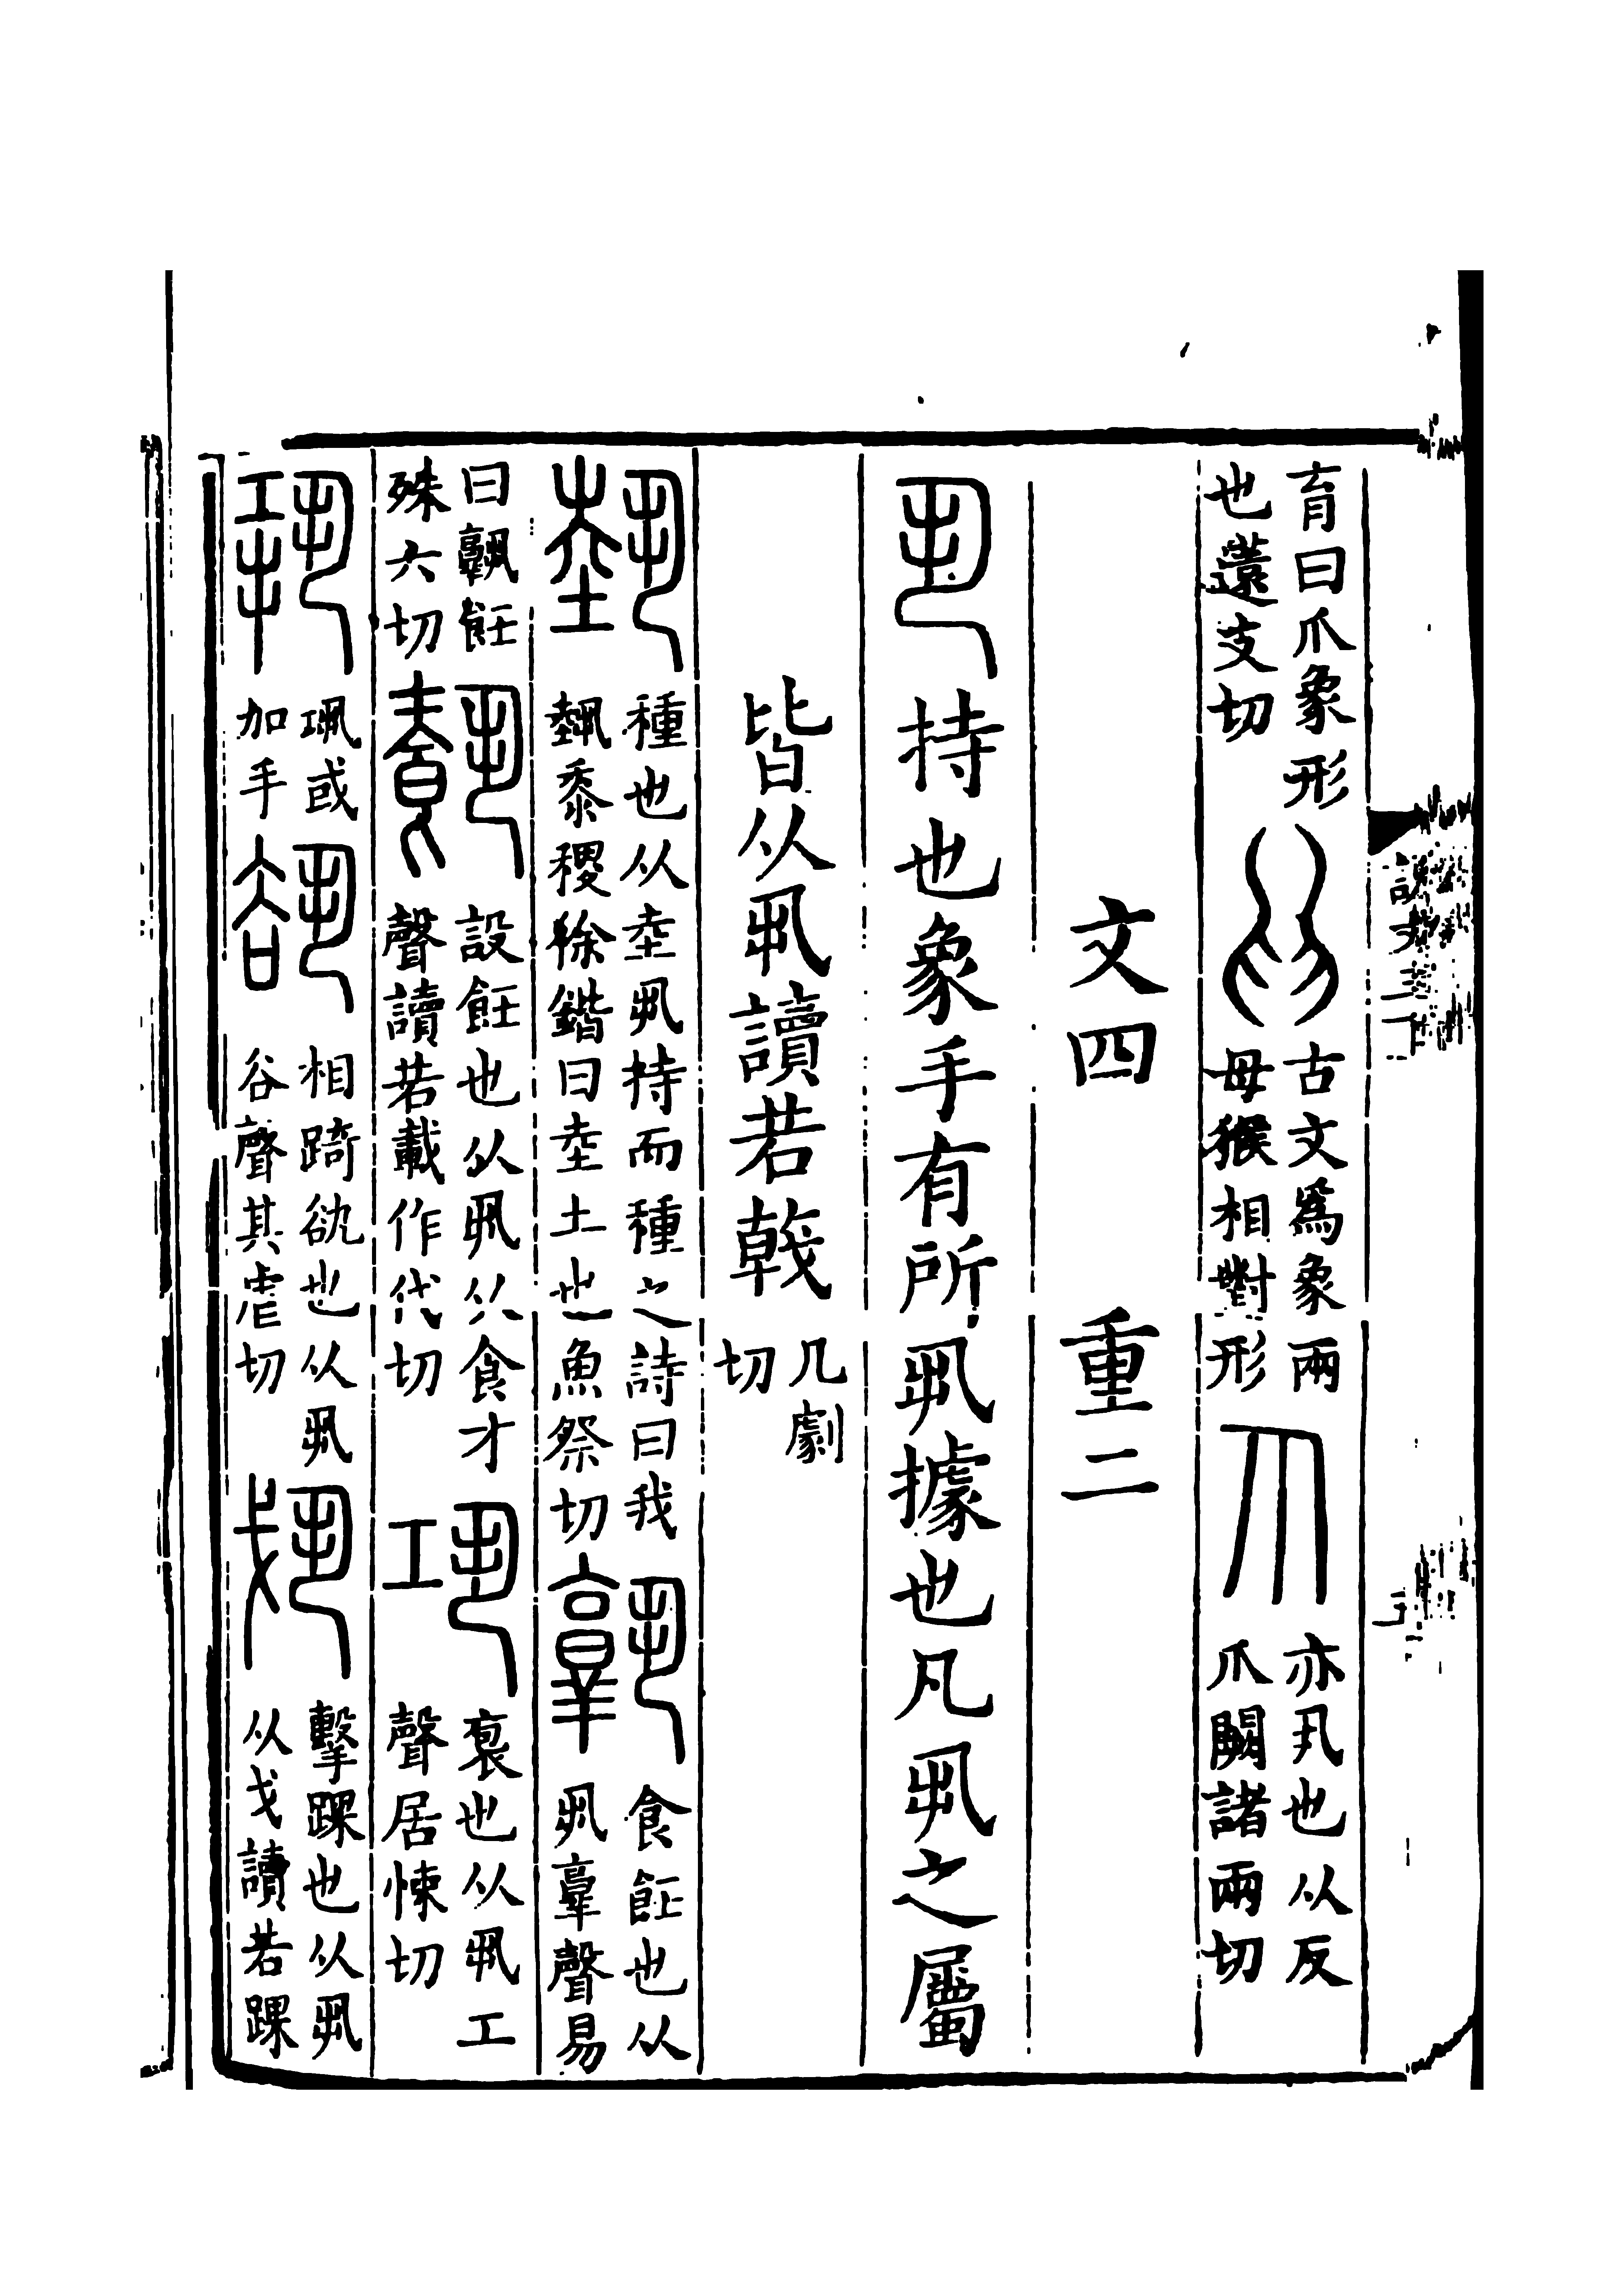 育曰爪象形
也薳支切
古文爲象兩
母猴相對形
亦丮也从反
爪闕諸兩切
文四 重二
持也象手有所丮據也凡丮之屬
皆从丮讀若戟
几劇
切
種也从坴丮持而種之詩曰我
埶黍稷徐鍇曰坴土也魚祭切
食飪也从
丮𦎫聲易
曰孰飪
殊六切
設飪也从丮从食才
聲讀若載作代切
袌也从丮工
聲居悚切
巩或
加手
相踦㕁也从丮
谷聲其虐切
擊踝也从丮
从戈讀若踝